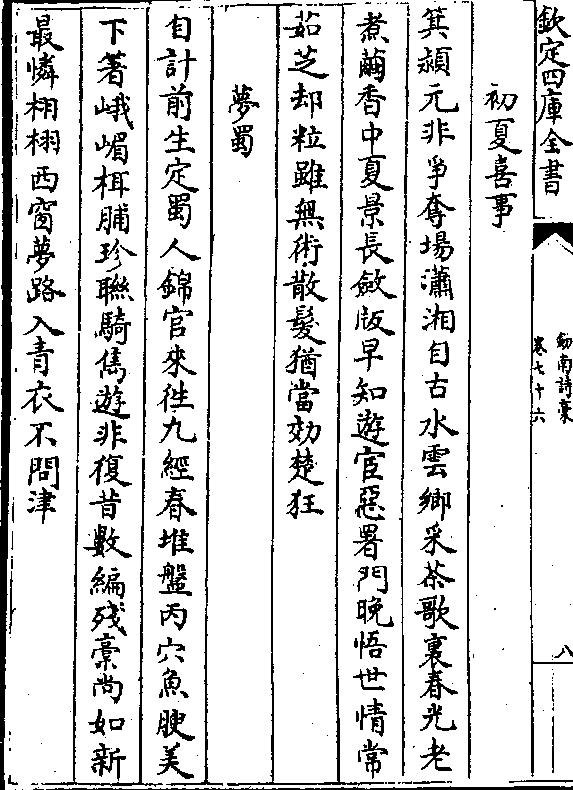 欽定四庫全書
劒南詩稾
卷七十六
八
初夏喜事
箕潁元非爭奪場瀟湘自古水雲鄉采茶歌裏春光老
煮繭香中夏景長斂版早知遊宦惡署門晚悟世情常
茹芝却粒雖無術散髪猶當効楚狂
夢蜀
自計前生定蜀人錦官來徃九經春堆盤丙穴魚腴美
下著峨嵋栮脯珍聯騎雋遊非復昔數編殘稾尚如新
最憐栩栩西窗夢路入青衣不問津